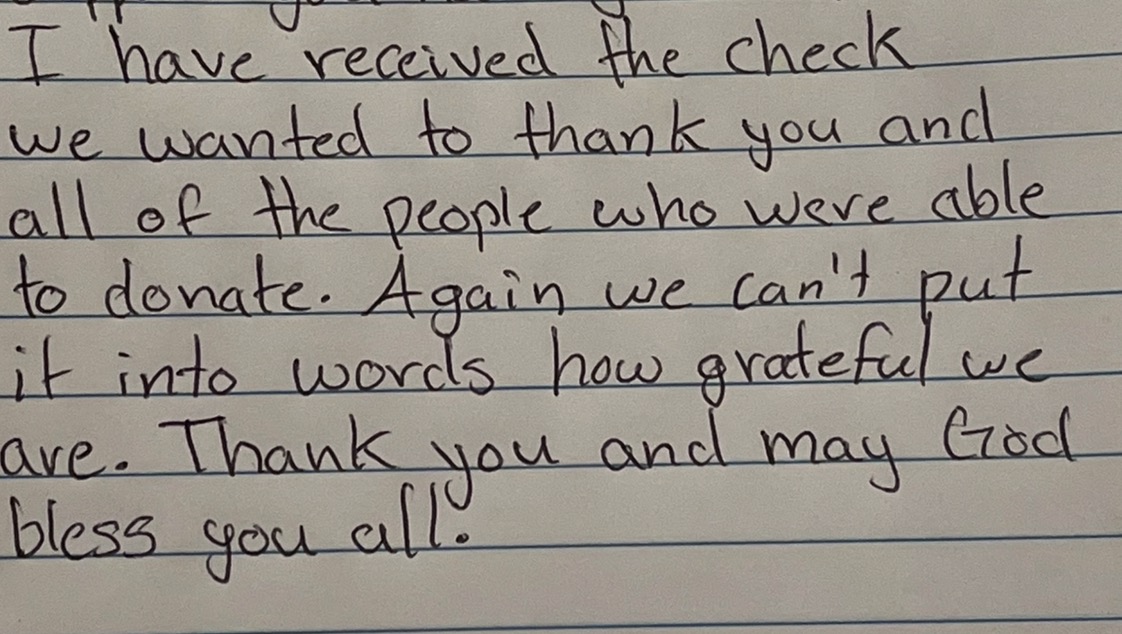 I have received the check
we wanted to thank you and
all of the people who were able
to donate. Again we can't put
it into words how grateful we
are. Thank you and may God
bless you all.